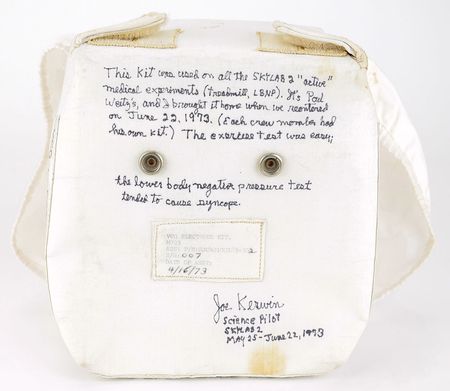 This kit was used on all the SKYLAB 2 "active"
medical experiments (treadmill, LBNP). It's Paul
Weitz's, and I brought it home when we reentered
on June 22, 1973. (Each crew member had
his own kit.) The exercise test was easy;
the lower body negative pressure test
tended to cause syncope.
ELECTRODE KIT,
007
DATE OF
4/16/73
Joe Kerwin
Science Pilot
SKYLAB 2
MAY 25 - June 22, 1973